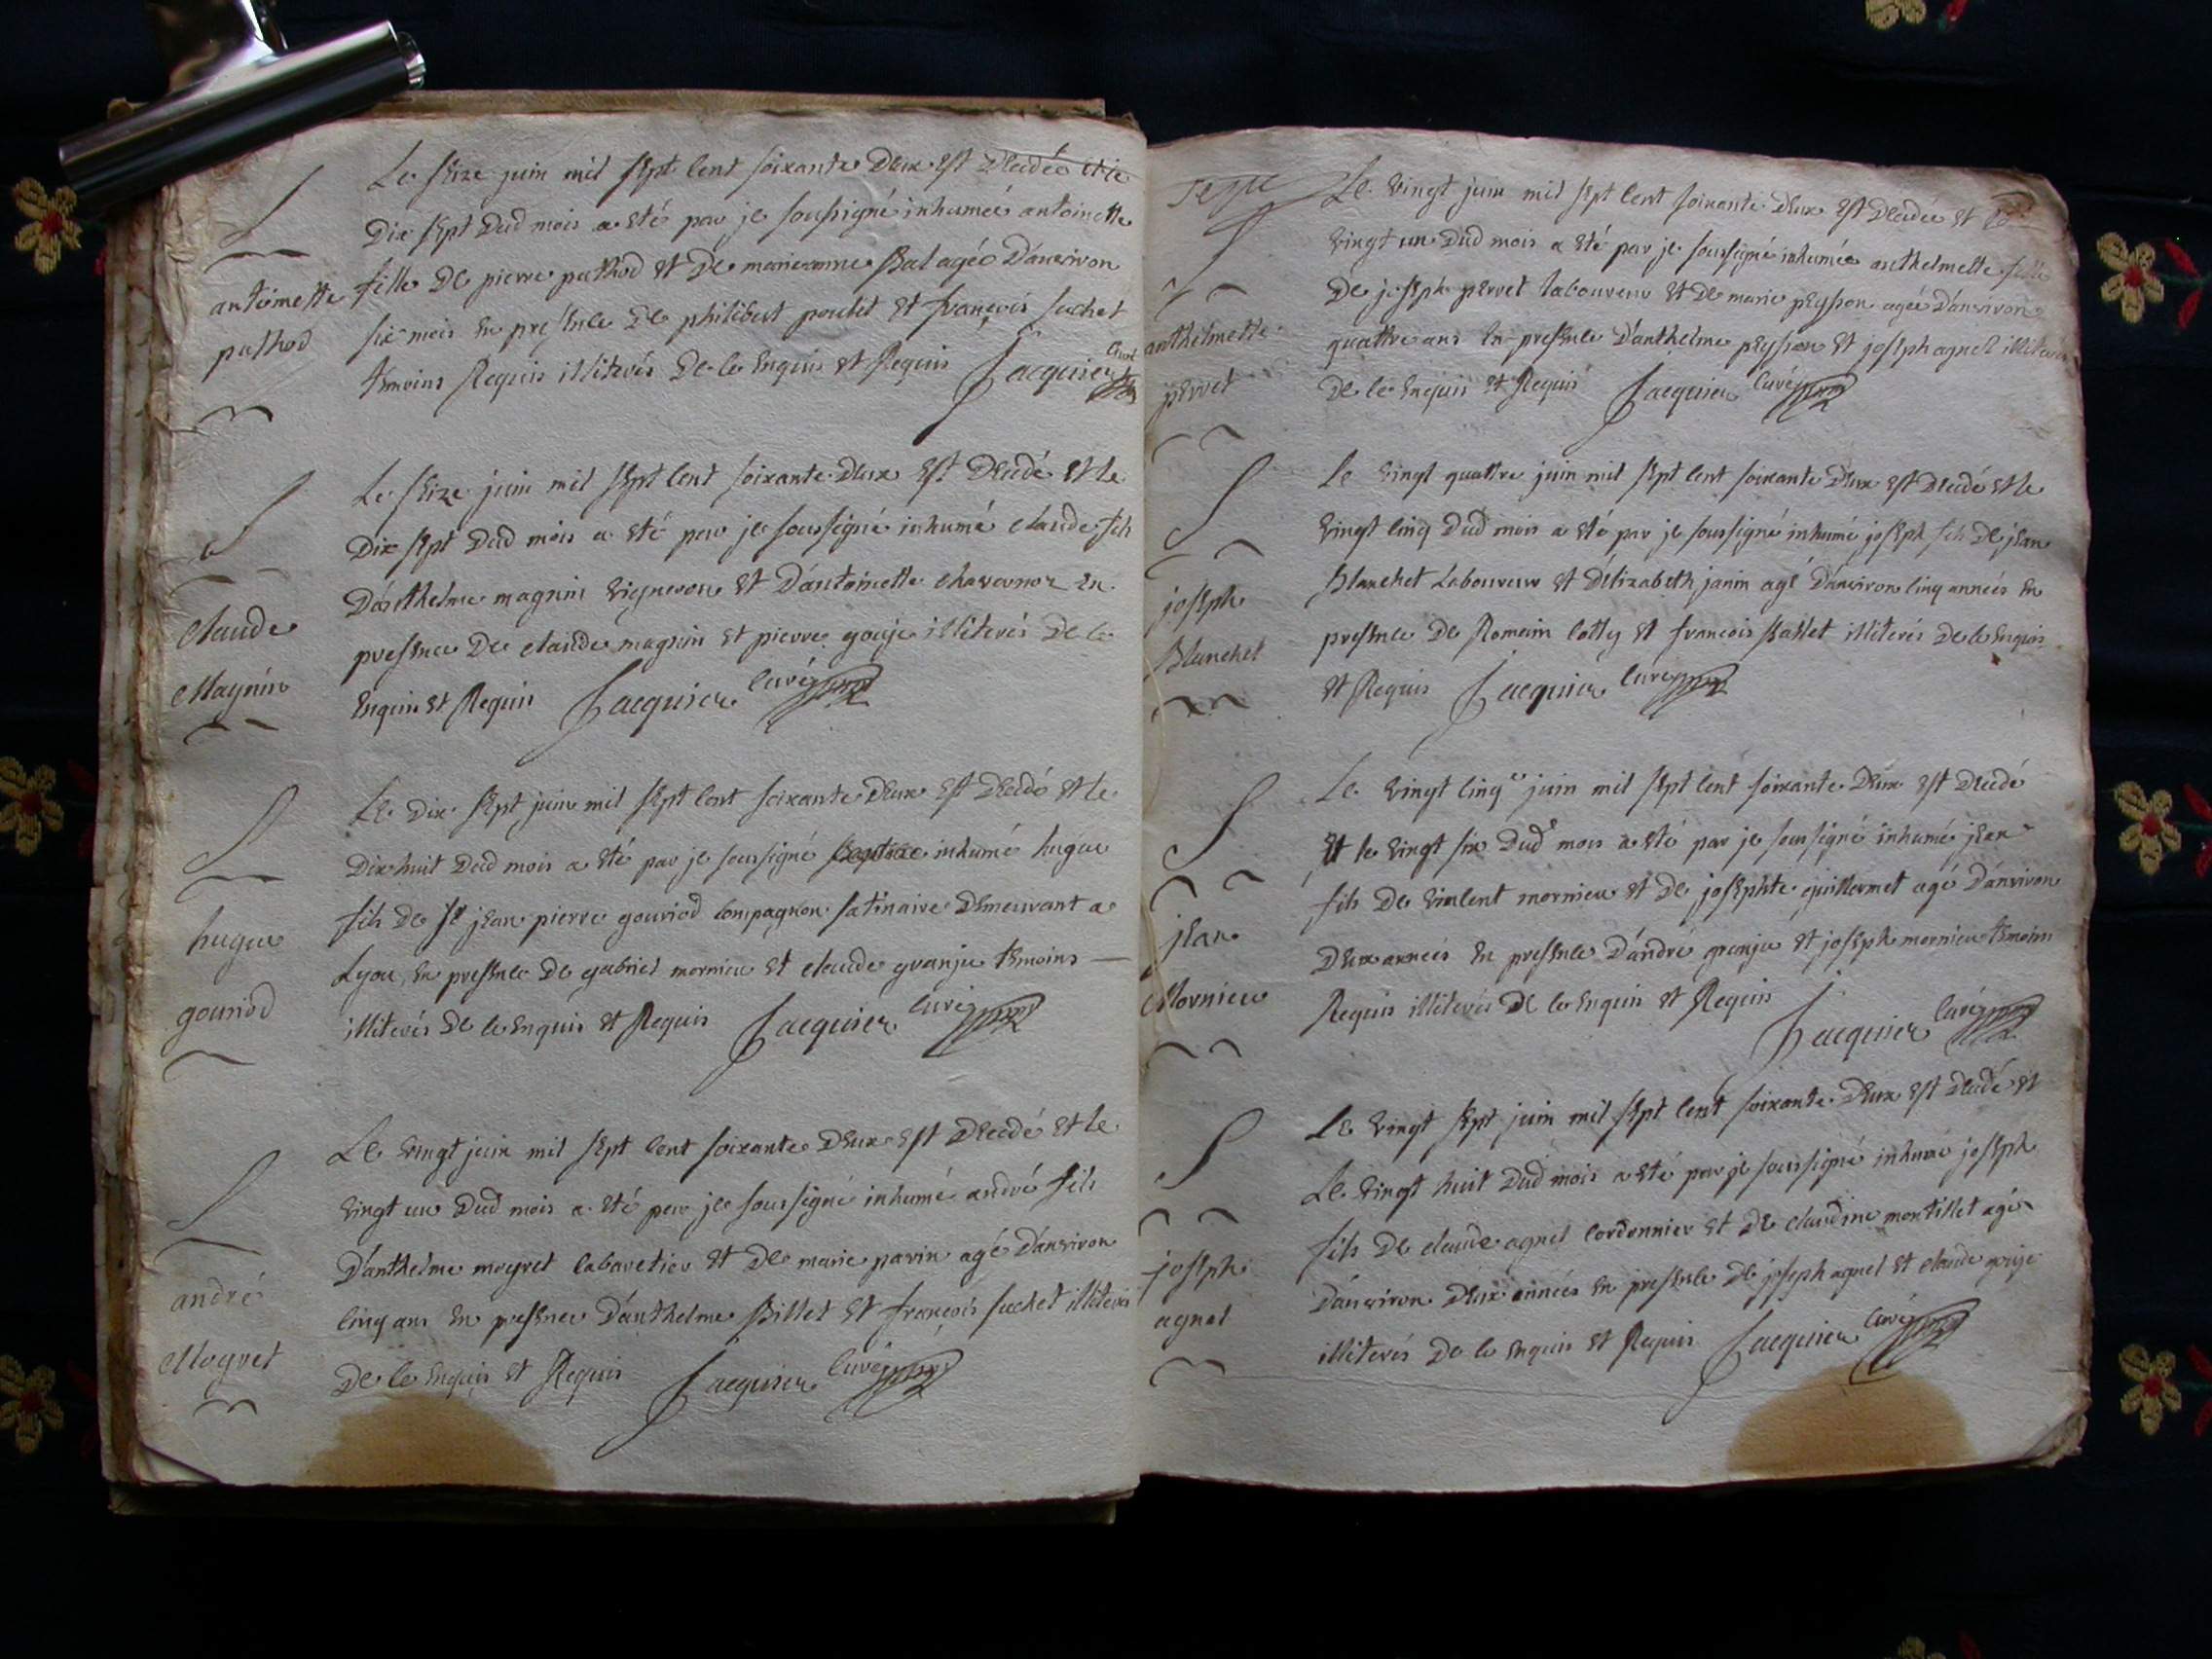 S
antoinette
pathod
Le seize juin mil sept cent soixante deux est decedée et le
dix sept dud mois a eté par je soussigné inhumée antoinette
fille de pierre pathod et de marieanne Bal agée d'anviron
six mois en presence de philibert pochet et françois suchet
temoins Requis illiterés de ce enquis et Requis Jacquier Curé
S
claude
Magnin
Le seize juin mil sept cent soixante deux est decedé et le
dix sept dud mois a eté par je soussigné inhumé claude fils
d'anthelme magnin vigneron et d'antoinette en
presence de claude magnin et pierre gouje illiterés de ce
enquis et Requis Jacquier Curé
S
hugue
gouriod
Le dix sept juin mil sept cent soixante deux est decedé et le
dix huit dud mois a eté par je soussigné inhumé hugue
fils de jean pierre gouriod compagnon satinaire demeurant a
Lyon, en presence de gabriel mornieu et claude granju temoins
illiterés de ce enquis et Requis Jacquier Curé
S
andré
Moyret
Le vingt juin mil sept cent soixante deux est decedé et le
vingt un dud mois a eté par je soussigné inhumé andré fils
d'anthelme moyret cabaretier et de marie parin agé d'anviron
cinq ans en presence d'anthelme Billet et françois suchet illiterés
de ce enquis et Requis Jacquier Curé
S
anthelmette
perret
Le vingt juin mil sept cent soixante deux est decedée et le
vingt un dud mois a eté par je soussigné inhumée anthelmette fille
de joseph perret laboureur et de marie peysson agée d'anviron
quattre ans en presence d'anthelme peysson et joseph agnel illiterés
de ce enquis et Requis Jacquier Curé
S
joseph
Blanchet
Le vingt quattre juin mil sept cent soixante deux est decedé et le
vingt cinq dud mois a eté par je soussigné inhumé joseph fils de jean
Blanchet Laboureur et d'elizabeth janin agé d'anviron cinq années en
presence de Romain cotty et francois Ballet illiterés de ce enquis
et Requis Jacquier Curé
S
jean
Mornieu
Le vingt cinq juin mil sept cent soixante deux est decedé
et le vingt six dud mois a eté par je soussigné inhumé jean
fils de vincent mornieu et de josephte guillermet agé d'anviron
deux années en presence d'andré granju et joseph mornieu temoins
Requis illiterés de ce enquis et Requis
Jacquier Curé
S
joseph
agnel
Le vingt sept juin mil sept cent soixante deux est decedé et
Le vingt huit dud mois a eté par je soussigné inhumé joseph
fils de claude agnel cordonnier et de claudine montillet agé
d'anviron deux années en presence de joseph agnel et claude gouje
illiterés de ce enquis et Requis Jacquier Curé